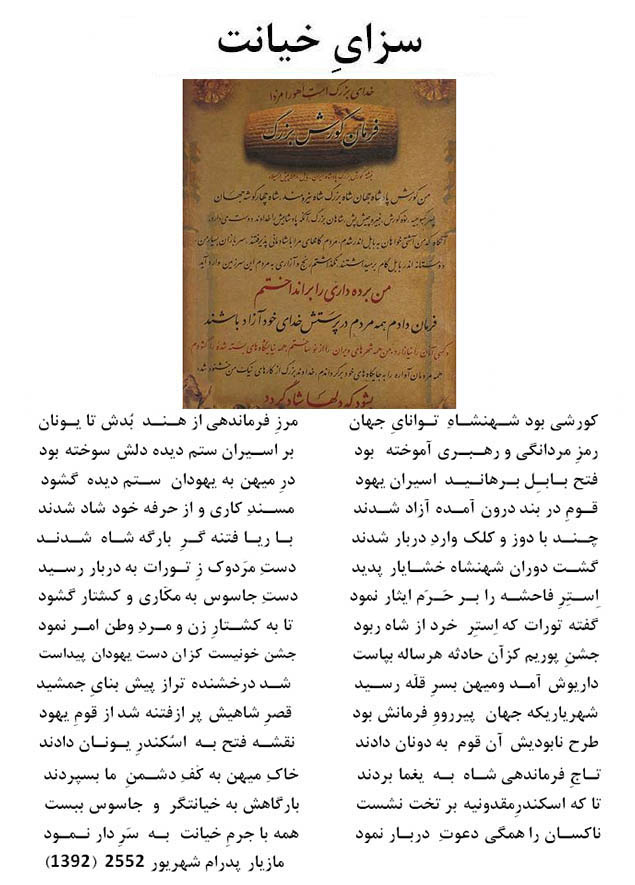 سزایِ خیانت
خدای بزرگ است اهورا مزدا
فرمان کورش بزرگ
من کورش پادشاه جهان شاه بزرگ شاه نیرومند، شاه چهار گوشه جهان
من برده داری را برانداختم
فرمان دادم همه مردم در پرستش خدای خود آزاد باشند
بشود که دلها شاد گردد
کورشی بود شهنشاهِ توانایِ جهان مرزِ فرماندهی از هند بُدش تا یونان
رمزِ مردانگی و رهبری آموخته بود بر اسیران ستم دیده دلش سوخته بود
فتح بابِل برهانید اسیران یهود درِ میهن به یهودان ستم دیده گشود
قومِ در بند درون آمده آزاد شدند مسندِ کاری و از حرفه خود شاد شدند
چند با دوز و کلک واردِ دربار شدند با ریا فتنه گرِ بارگه شاه شدند
گشت دوران شهنشاه خشایار پدید دستِ مرَدوک زِ تورات به دربار رسید
اِستِرِ فاحشه را بر حَرَم ایثار نمود دستِ جاسوس به مکّاری و کشتار گشود
گفته تورات که اِستِر خرد از شاه ربود تا به کشتارِ زن و مردِ وطن امر نمود
جشنِ پوریم کزآن حادثه هرساله بپاست جشن خونیست کزان دست یهودان پیداست
داریوش آمد ومیهن بسرِ قلّه رسید شد درخشنده تراز پیش بنایِ جمشید
شهریاریکه جهان پیرروِ فرمانش بود قصرِ شاهیش پر ازفتنه شد از قومِ یهود
طرح نابودیش آن قوم به دونان دادند نقشه فتح به اسْکندرِ یونان دادند
تاجِ فرماندهی شاه به یغما بردند خاکِ میهن به کَفِ دشمنِ ما بسپردند
تا که اسکندرِمقدونیه بر تخت نشست بارگاهش به خیانتگر و جاسوس ببست
ناکسان را همگی دعوتِ دربار نمود همه با جرمِ خیانت به سَرِ دار نمود
مازیار پدرام شهریور 2552 (1392)